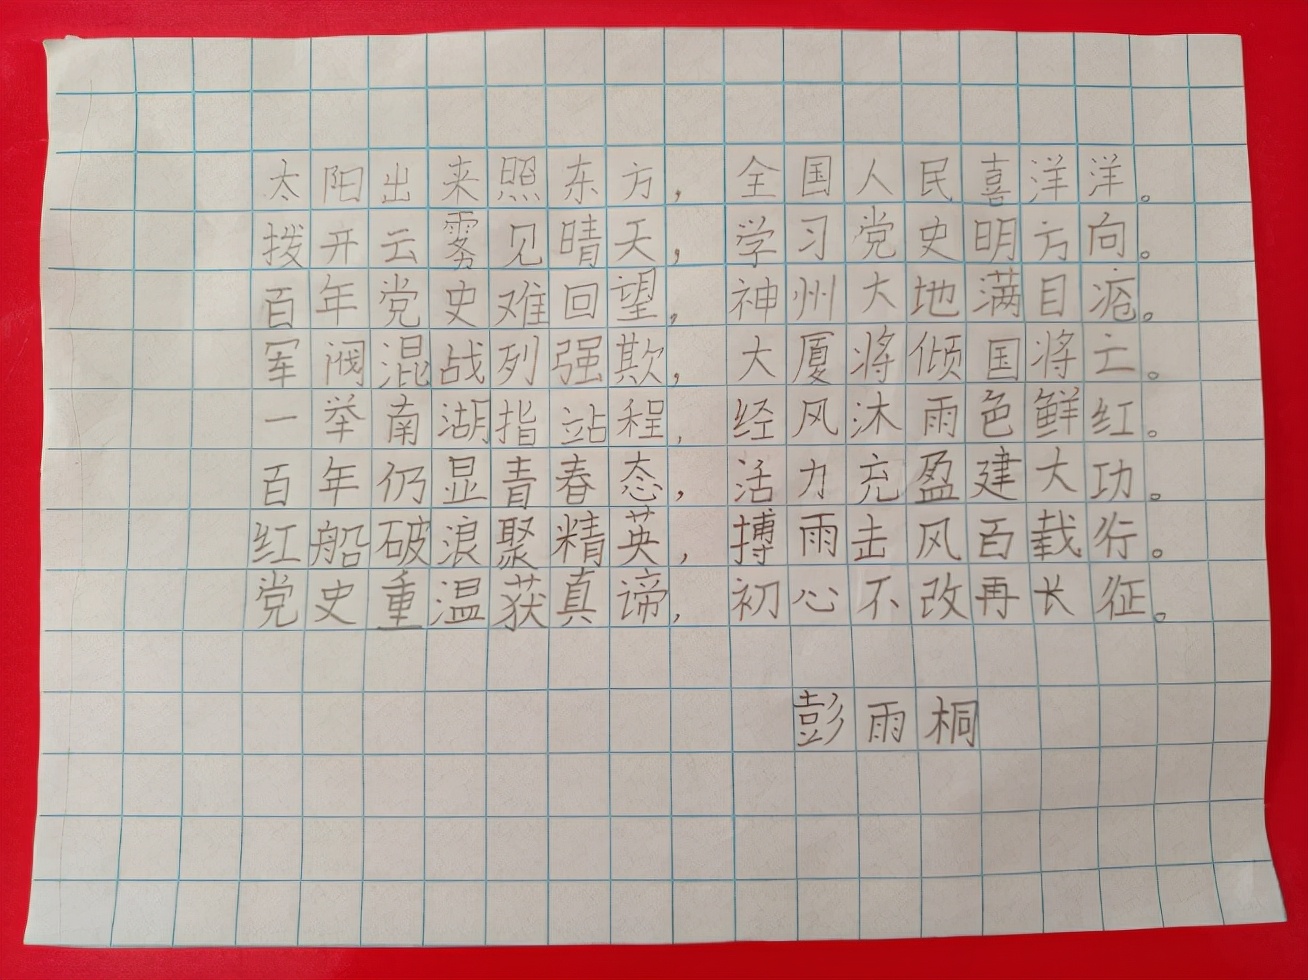 太阳出来照东方，全国人民喜洋洋。
拨开云雾见晴天，学习党史明方向。
百年党史难回望，神州大地满目疮。
军阀混战列强欺，大厦将倾国将亡。
一举南湖指站程，经风沐雨色鲜红。
百年仍显青春态，活力充盈建大功。
红船破浪聚精英，搏雨击风百载行。
党史重温获真谛，初心不改再长征。
彭雨桐